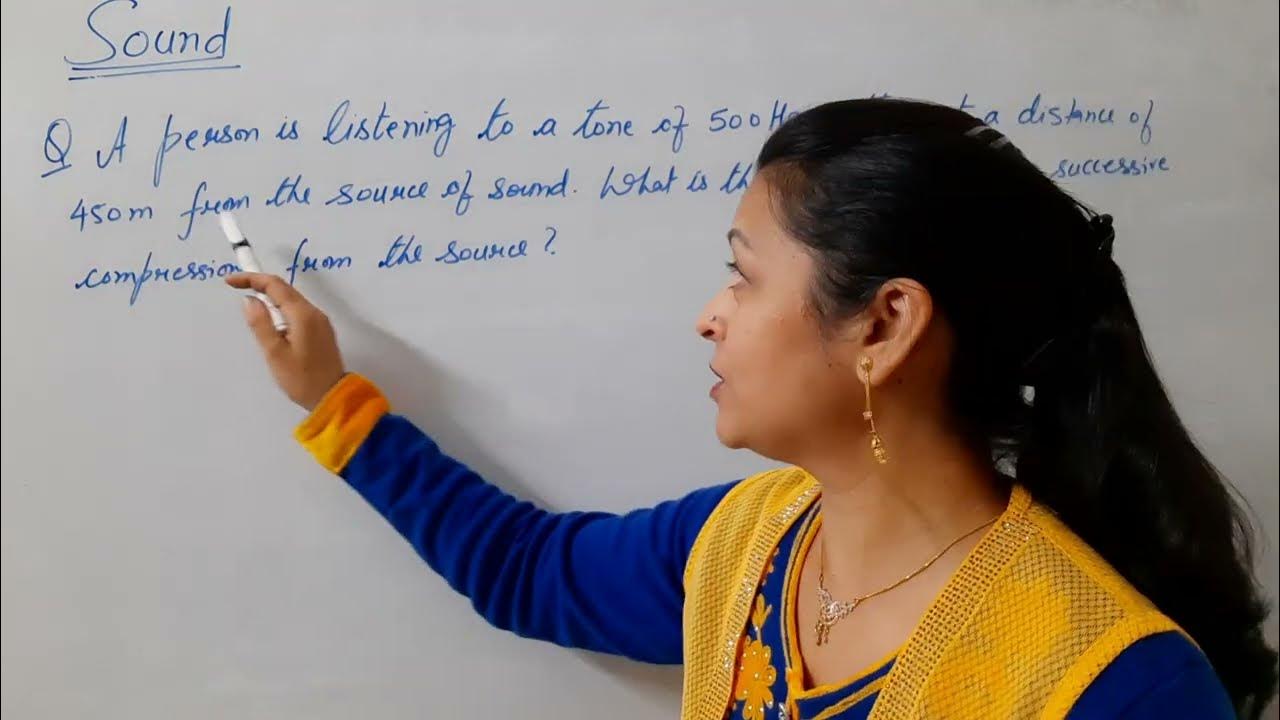 Sound
Q A person is listening to a tone of 500 a distance of
450m from the source of sound. What is successive
compression from the source?